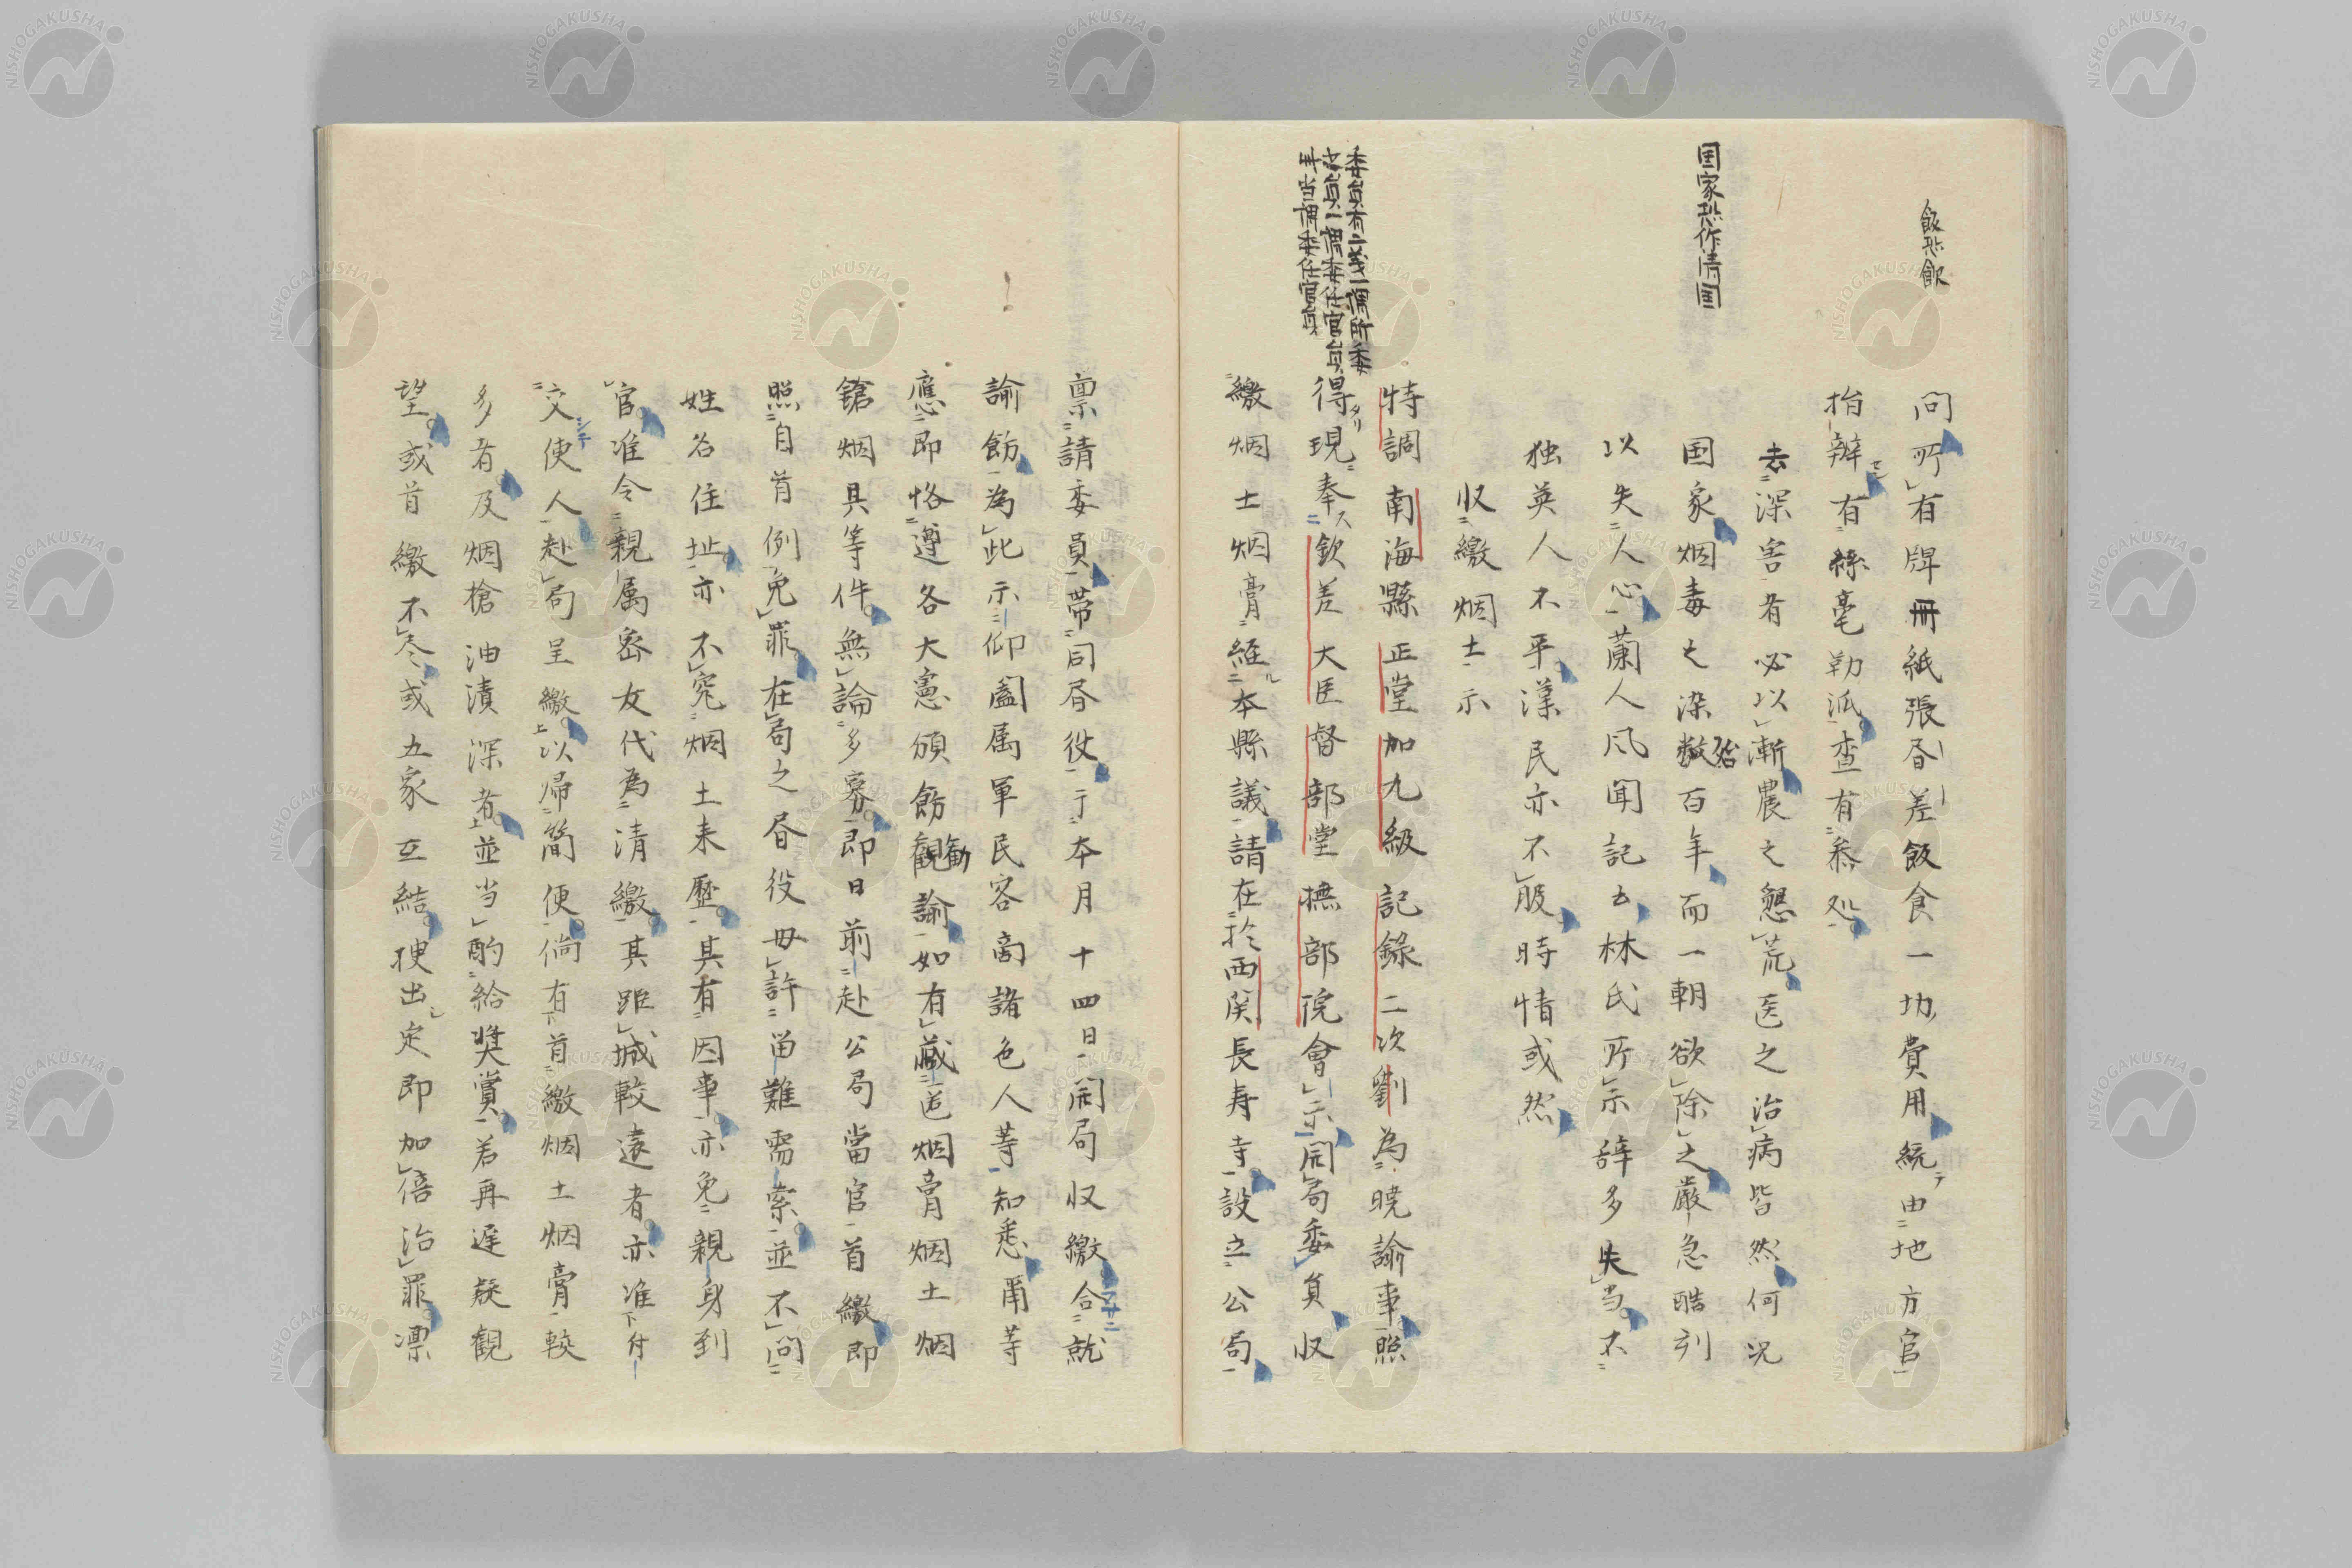 飯恐飲
問所有牌冊紙張昏差飯食一切費用統由地方官
指辦有絲毫勒派查有叅処
去深害者必以漸農之懇荒医之治病皆然何况
国家恐作清国
国家烟毒之染数殆百年而一朝欲除之厳急酷列
以失人心蘭人风闻記云林氏所示辞多失当不
独英人不平漢民亦不服時情或然
収繳烟土示
特調南海縣正堂加九級記錄二次劉為曉諭事照
委員有二義一謂所委
之員一謂委任官員
此当謂委任官員
得現奉欽差大臣督部堂撫部院會示開局委員収
繳烟土烟膏經本縣議請在於西関長寿寺設立公局
禀請委員帶同昏役于本月十四日開局収繳合就
諭飭為此示仰闔属軍民客商諸色人等知悉爾等
應即恪遵各大憲頒飭觀勧諭如有藏造烟膏烟土烟
鎗烟具等件無論多寡即日前赴公局當官首繳即
照自首例免罪在局之昏役毋許留難需索並不問
姓名住址亦不究烟土来歷其有因事亦免親身到
官准令親属密友代為清繳其距城較遠者亦准付
交使人赴局呈繳以帰簡便倘有首繳烟土烟膏較
多有及烟槍油漬深者並当酌給奨賞若再遅疑観
望或首繳不尽或五家互結捜出定即加倍治罪凛